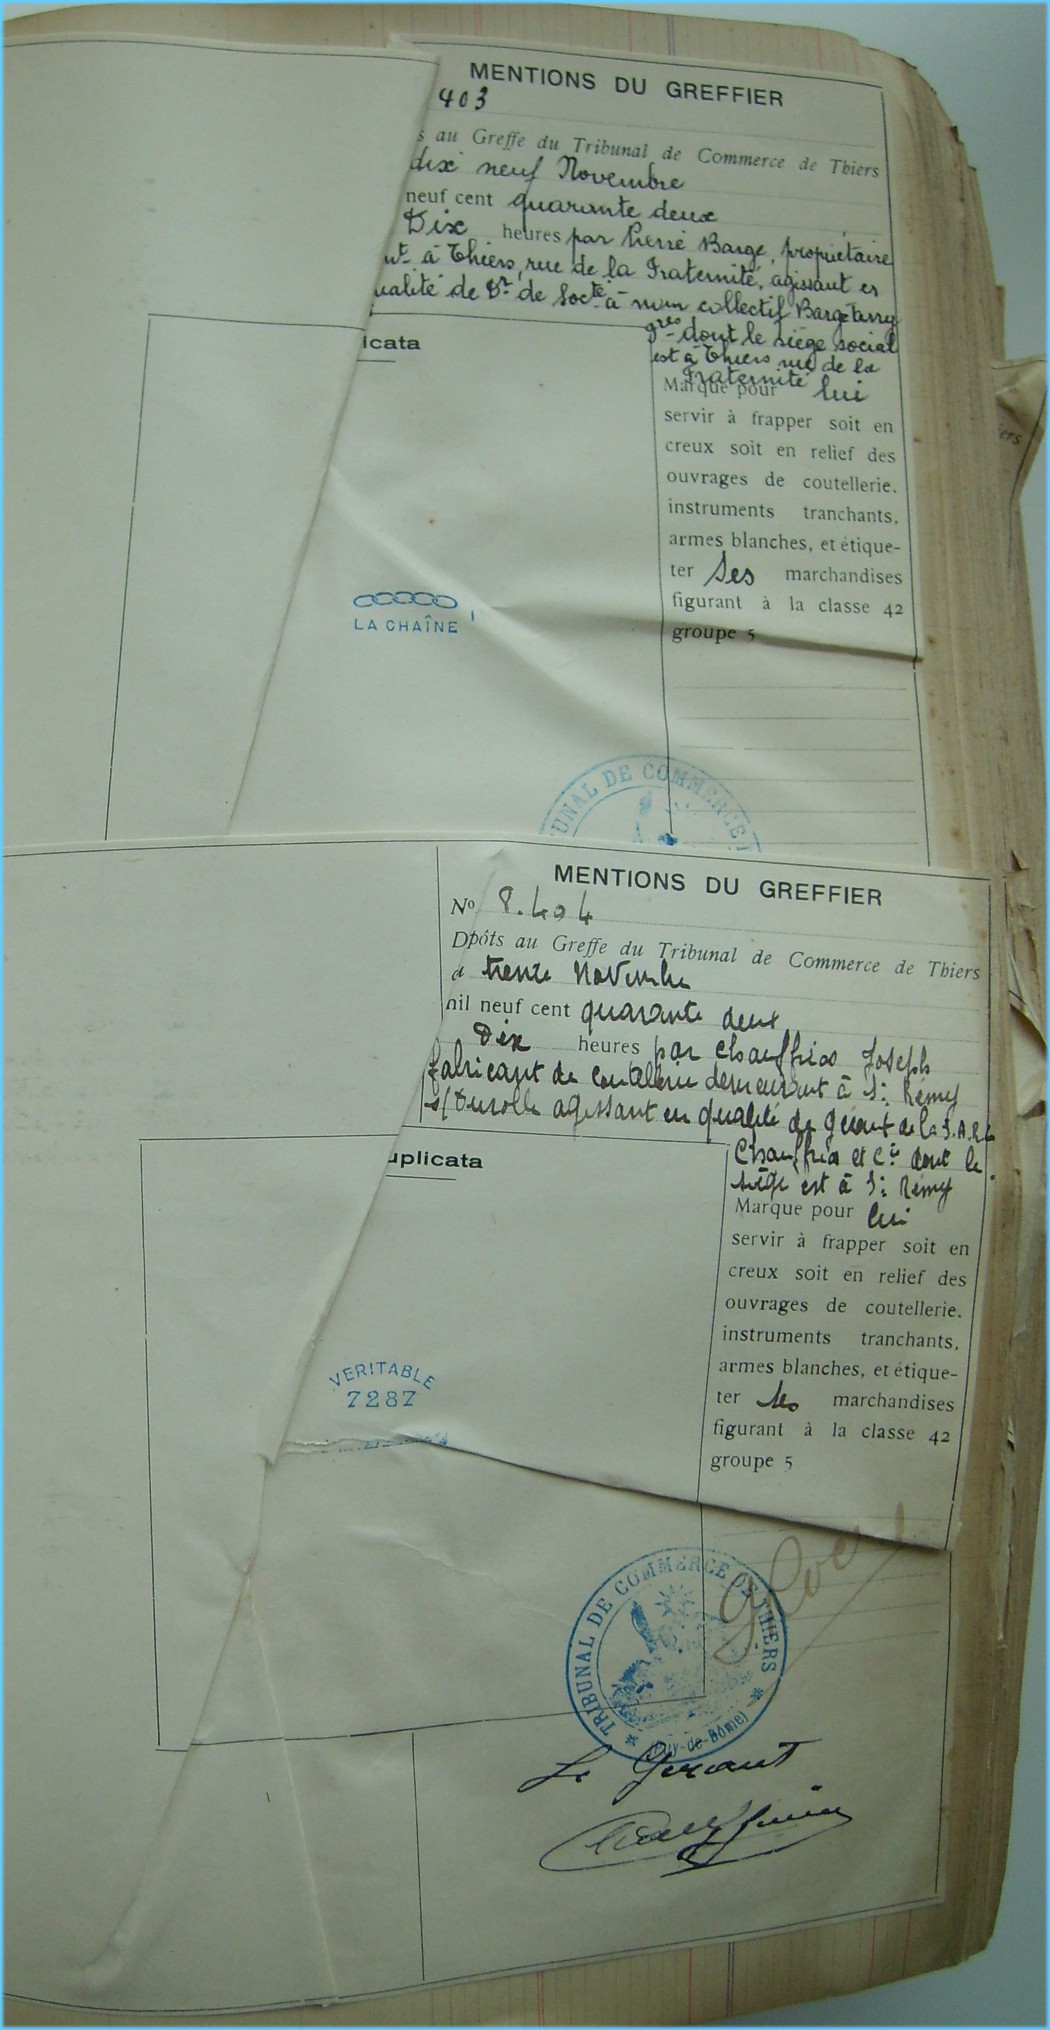 MENTIONS DU GREFFIER
403
s au Greffe du Tribunal de Commerce de Thiers
dix neuf Novembre
neuf cent quarante deux
Dix heures par Pierre Barge, propriétaire
nt à Thiers, rue de la Fraternité, agissant en
ualité de Dr de Socté à nom collectif Barge
dont le siège social
est à Thiers rue de la
Fraternité
Marque pour lui
servir à frapper soit en
creux soit en relief des
ouvrages de coutellerie,
instruments tranchants,
armes blanches, et étique-
ter ses marchandises
figurant à la classe 42
groupe 5
icata
LA CHAÎNE
UNAL DE COMMERCE
MENTIONS DU GREFFIER
No 8.404
Dpôts au Greffe du Tribunal de Commerce de Thiers
trente Novembre
nil neuf cent quarante deux
Dix heures par Chauffrias Joseph
fabricant de coutellerie demeurant à St Rémy
s/Durolle agissant en qualité de gérant de la S.A.R.L
Chauffrias et Cie dont le
siège est à St Rémy
Marque pour lui
servir à frapper soit en
creux soit en relief des
ouvrages de coutellerie,
instruments tranchants,
armes blanches, et étique-
ter ses marchandises
figurant à la classe 42
groupe 5
uplicata
VERITABLE
7287
TRIBUNAL DE COMMERCE DE THIERS
(Puy-de-Dôme)
Le Gérant